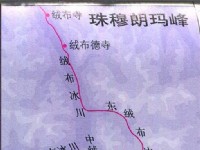 珠穆朗玛峰
绒布寺
绒布德寺
绒布冰川
东绒布
中绒
冰川